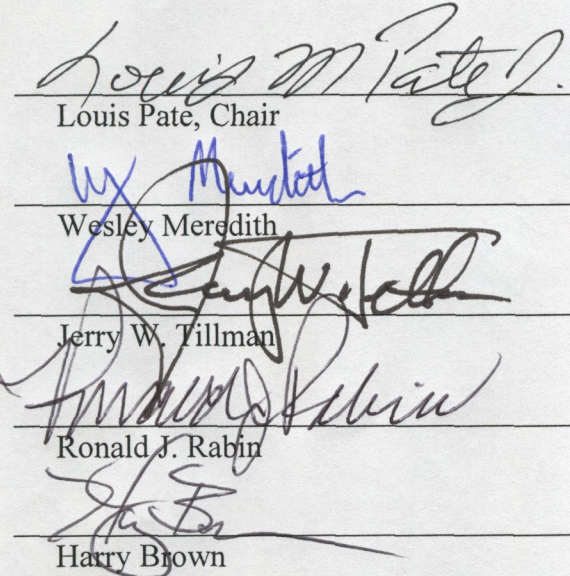 Louis M Pate Jr.
Louis Pate, Chair
Wes Meredith
Wesley Meredith
Jerry W. Tillman
Jerry W. Tillman
Ronald J Rabin
Ronald J. Rabin
Harry Brown